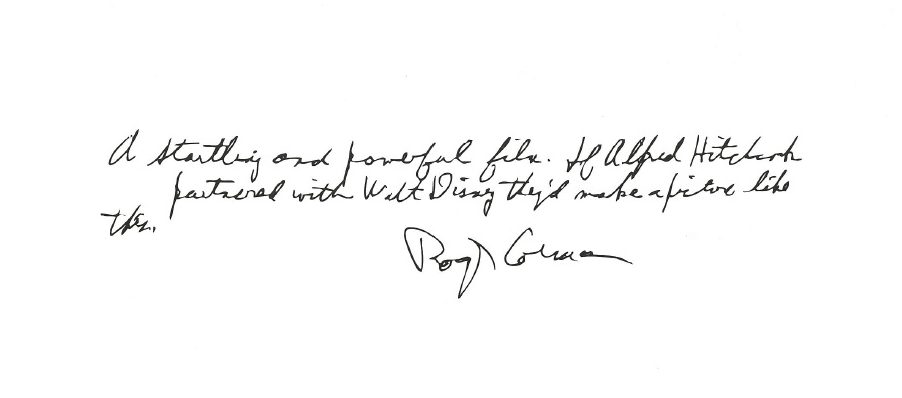 A startling and powerful film. If Alfred Hitchcock
partnered with Walt Disney they'd make a picture like
this.
Roger Corman